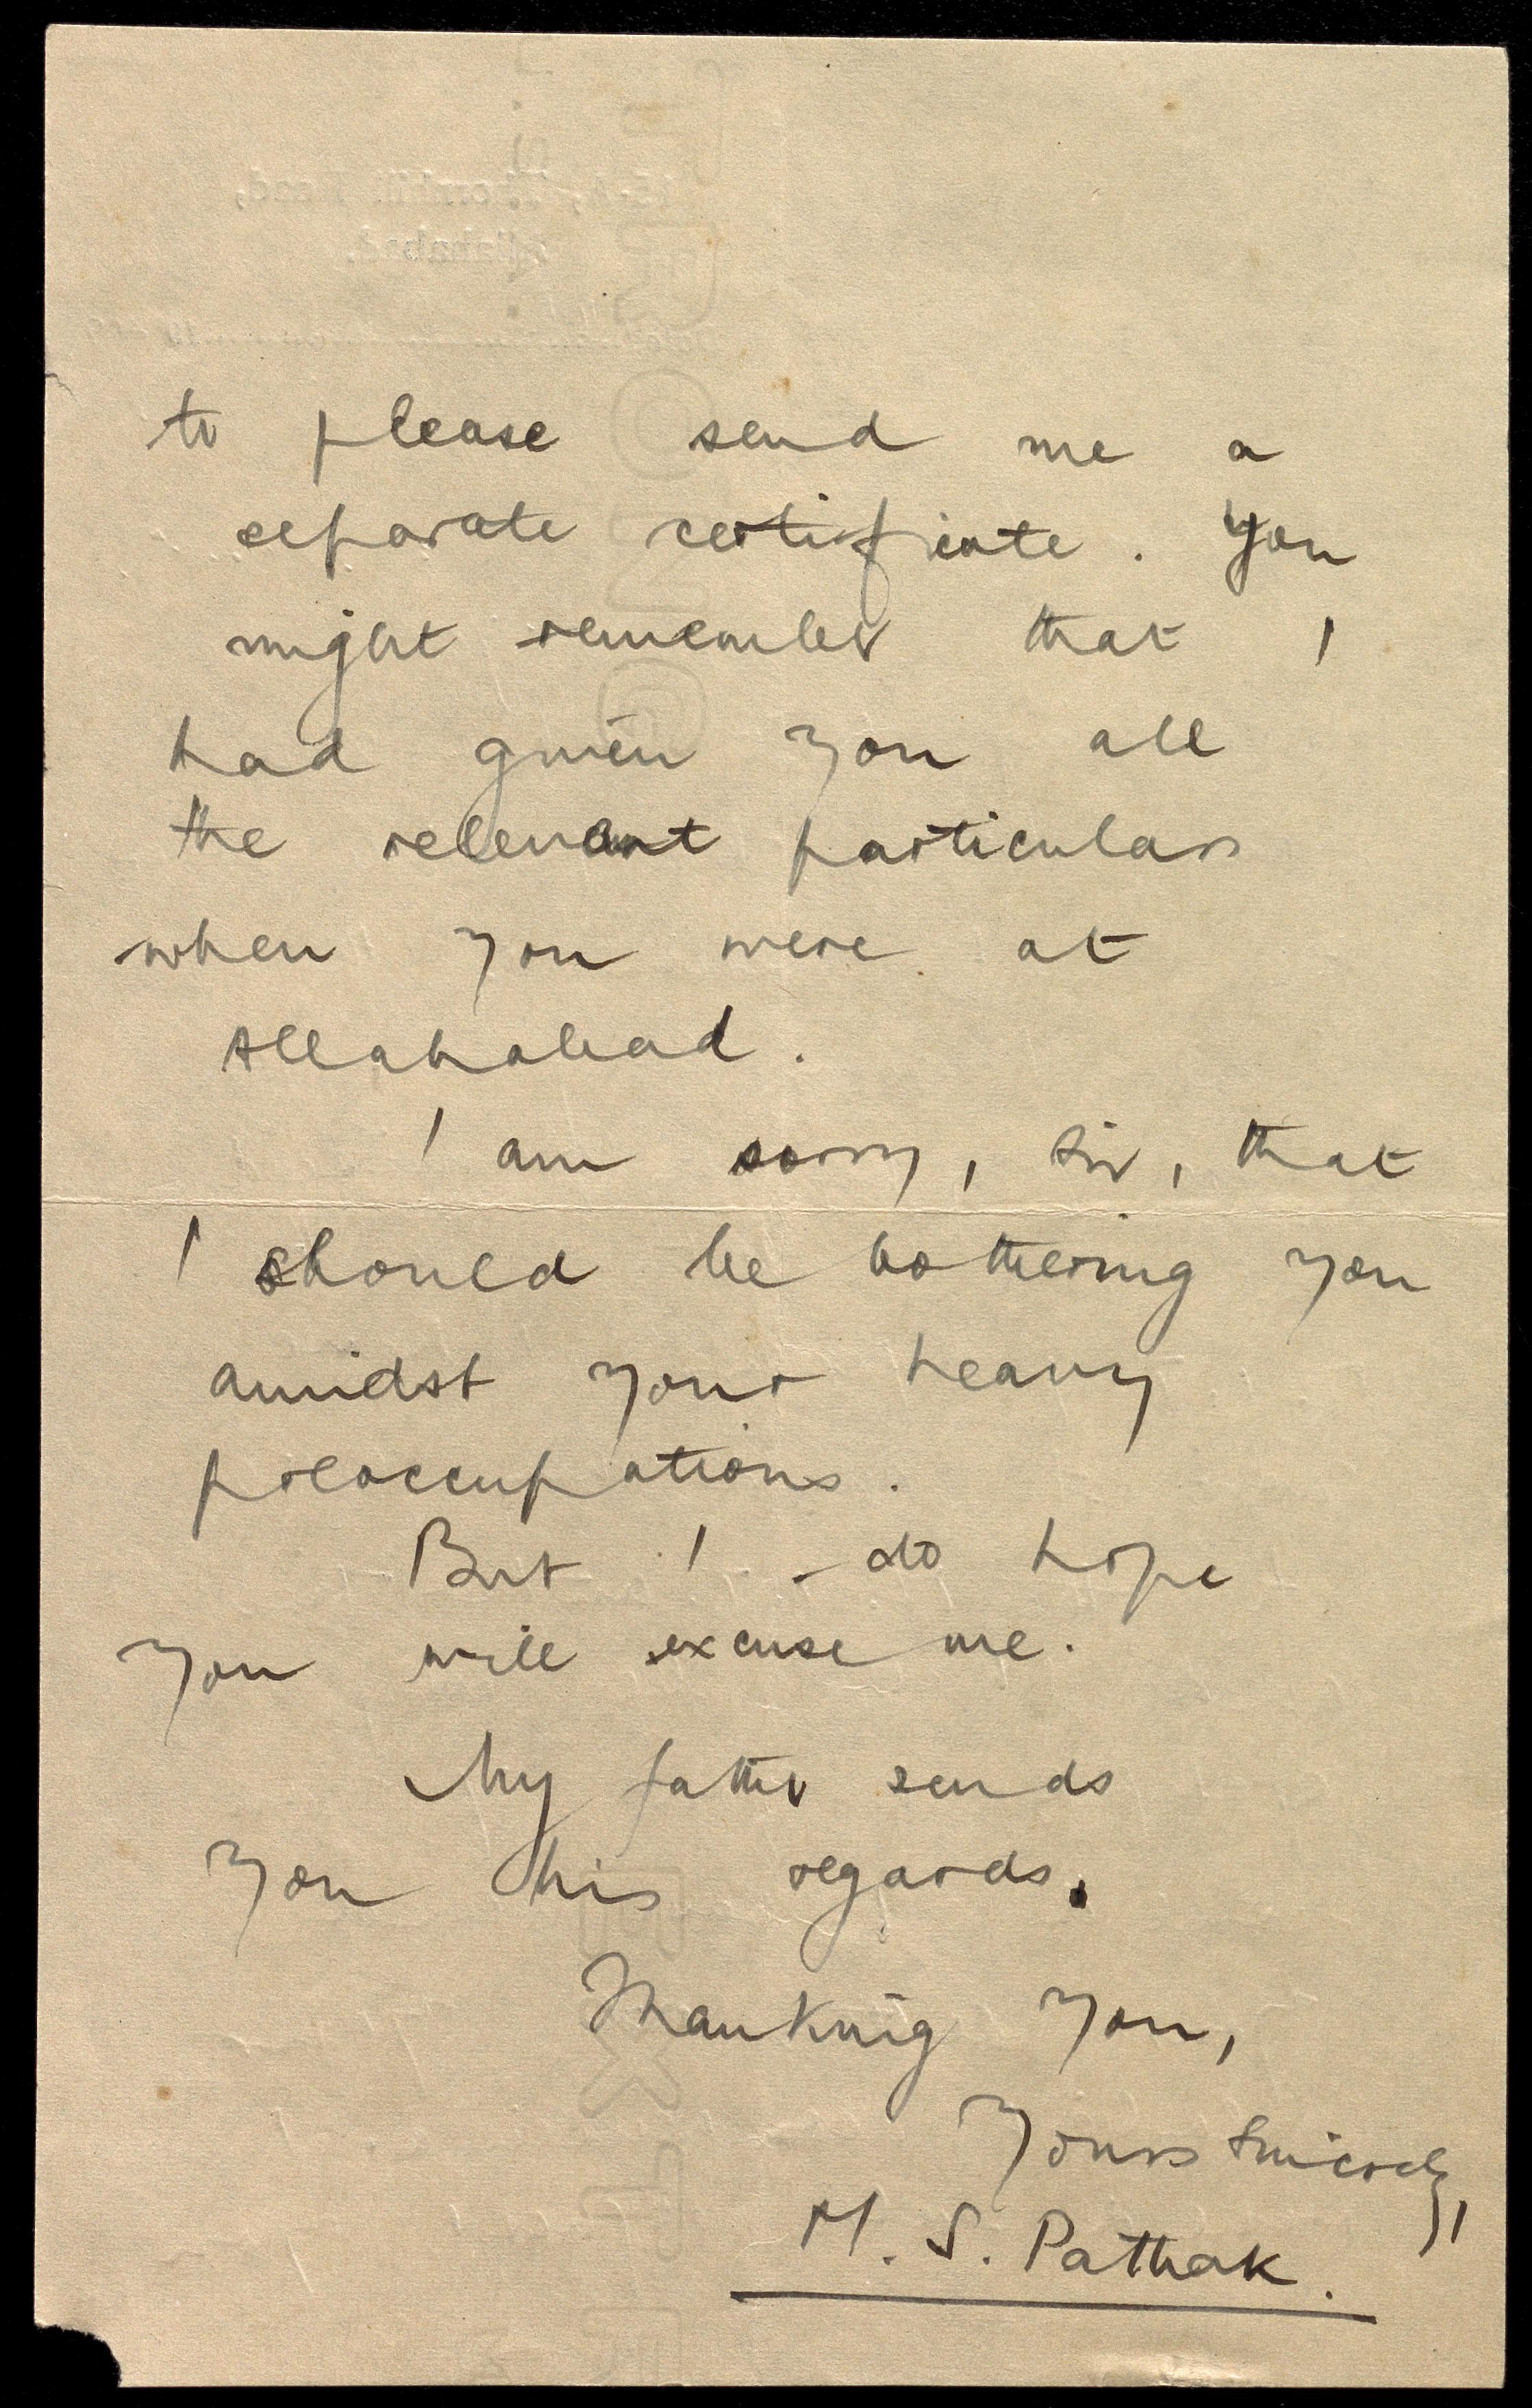 to please send me a
separate certificate. You
might remember that I
had given you all
the relevant particulars
when you were at
Allahabad.
I am sorry, Sir, that
I should be bothering you
amidst your heavy
preoccupations.
But I do hope
you will excuse me.
My father sends
you his regards.
Thanking you,
Yours Sincerely,
M. S. Pathak.